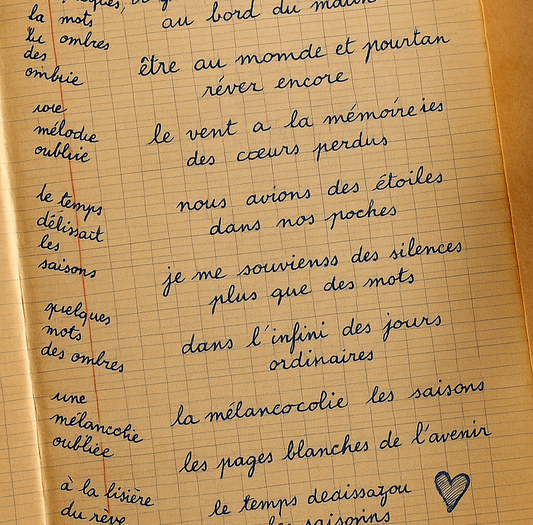 la mots
les ombres
des
ombrie
voie
mélodie
oubliie
le temps
délissait
les
saisons
quelques
mots
des ombres
une
mélancolie
oubliée
à la lisière
du rêve
au bord du
être au momde et pourtan
réver encore
le vent a la mémoireies
des cœurs perdus
nous avions des étoiles
dans nos poches
je me souvienss des silences
plus que des mots
dans l'infini des jours
ordinaires
la mélancocolie les saisons
les pages blanches de l'avenir
le temps dedissazou